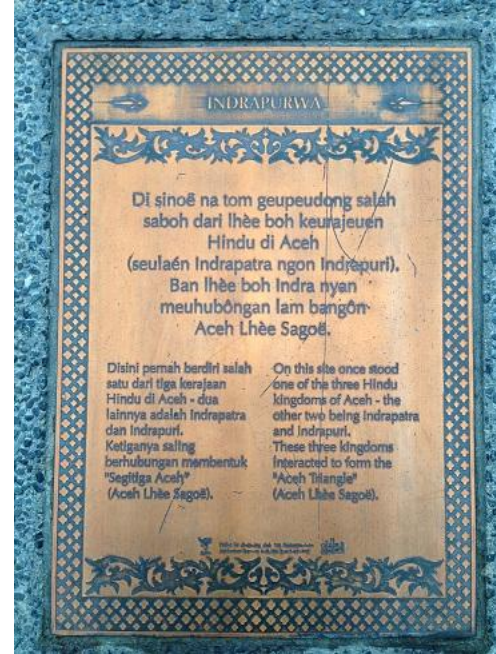 INDRAPURWA
Di sinoë na tom geupeudong salah
saboh dari lhèe boh keurajeuen
Hindu di Aceh
(seulaén Indrapatra ngon Indrapuri).
Ban lhèe boh Indra nyan
meuhubôngan lam bangôn
Aceh Lhèe Sagoë.
Disini pernah berdiri salah
satu dari tiga kerajaan
Hindu di Aceh - dua
lainnya adalah Indrapatra
dan Indrapuri.
Ketiganya saling
berhubungan membentuk
"Segitiga Aceh"
(Aceh Lhèe Sagoë).
On this site once stood
one of the three Hindu
kingdoms of Aceh - the
other two being Indrapatra
and Indrapuri.
These three kingdoms
interacted to form the
"Aceh Triangle"
(Aceh Lhèe Sagoë).